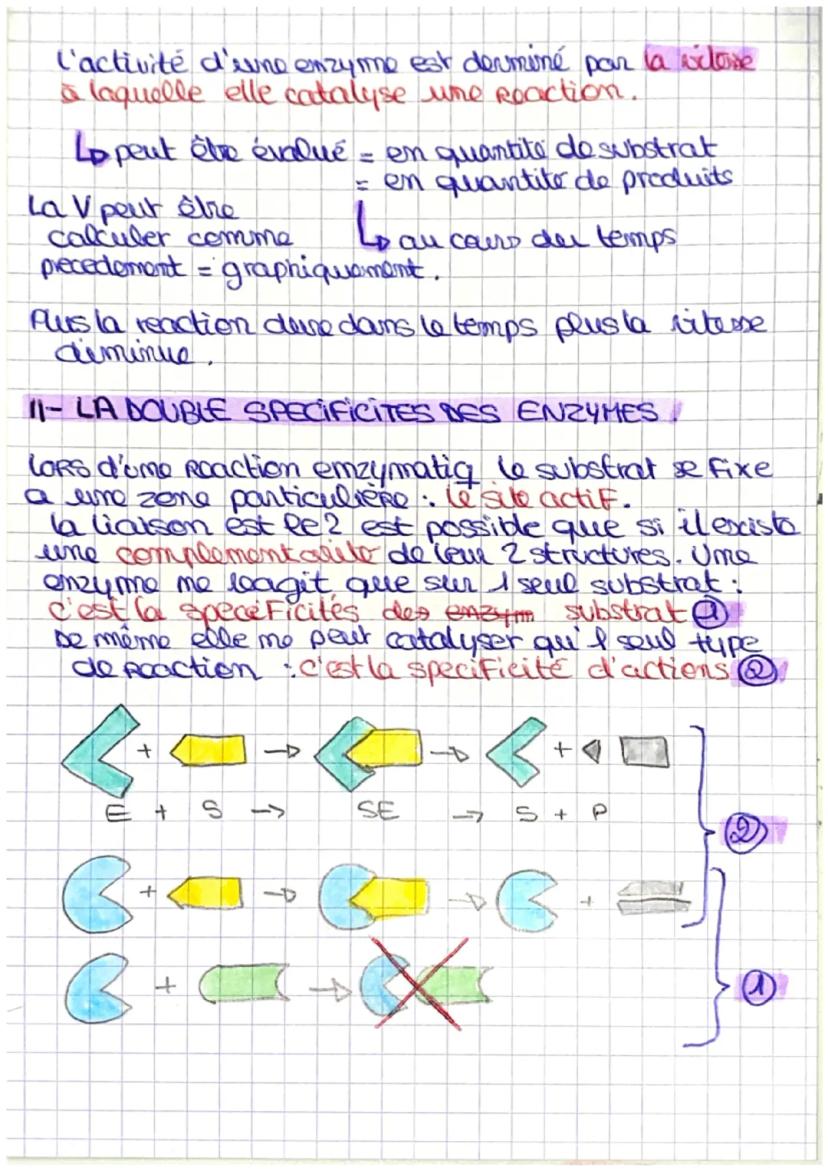 L'activité d'une enzyme est derminé par la vitesse
à laquelle elle catalyse une Reaction.
↳ peut être évalué = en quantité de substrat
= en quantité de produits
↳ au cours du temps
La V peut être
calculer comme
precedement = graphiquement.
Plus la reaction dure dans le temps plus la vitesse
diminue.
II- LA DOUBLE SPECIFICITES DES ENZYMES.
LORS d'une Reaction enzymatiq le substrat se fixe
a une zone particulière : le site actif.
la liaison est Re2 est possible que si il existe
une complementarité de leur 2 structures. Une
enzyme ne reagit que sur 1 seul substrat :
c'est la specificités des enzym substrat ①
De même elle ne peut catalyser qu'1 seul type
de Reaction : c'est la specificité d'actions ②
+ → → +
E + S → SE → S + P
②
+ → → +
+ →
①